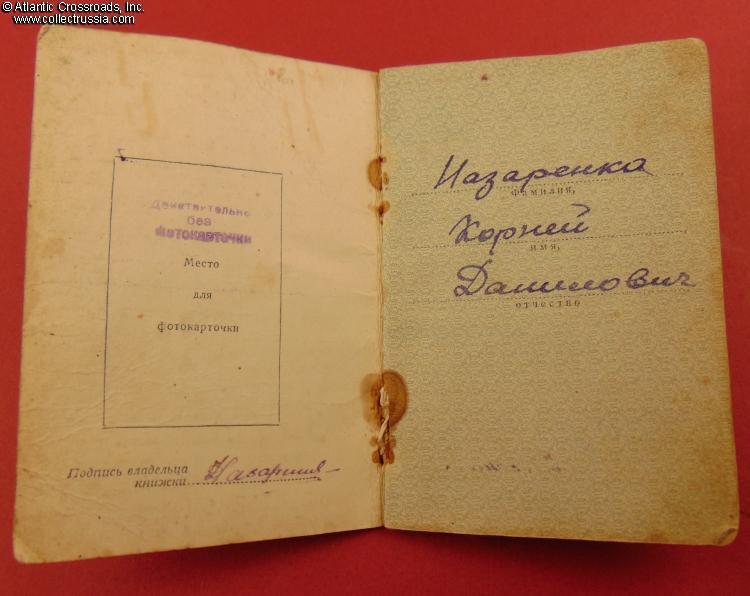 © Atlantic Crossroads, Inc.
www.collectrussia.com
Действительно
без
фотокарточки
Место
для
фотокарточки
Подпись владельца
книжки
Назаренко
фамилия,
Корней
имя,
Данилович
отчество